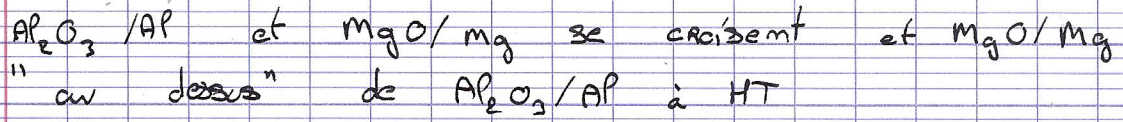 Al₂O₃ /Al et MgO/mg se croisent et MgO/Mg
"au dessus" de Al₂O₃/Al à HT